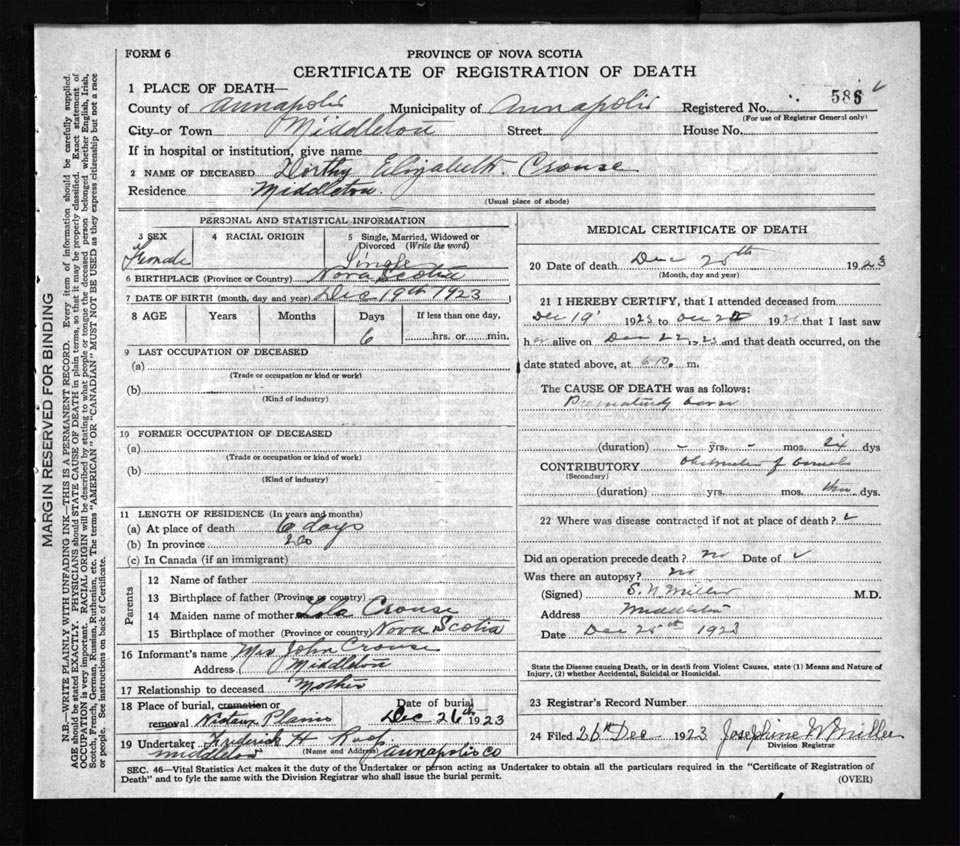 FORM 6
PROVINCE OF NOVA SCOTIA
CERTIFICATE OF REGISTRATION OF DEATH
1 PLACE OF DEATH—
County of Annapolis Municipality of Annapolis Registered No. 586
(For use of Registrar General only)
City or Town Middleton Street House No.
If in hospital or institution, give name
2 NAME OF DECEASED Dorthy Elizabeth Crouse
Residence Middleton.
(Usual place of abode)
PERSONAL AND STATISTICAL INFORMATION
3 SEX 4 RACIAL ORIGIN 5 Single, Married, Widowed or Divorced (Write the word)
Female Single
6 BIRTHPLACE (Province or Country) Nova Scotia
7 DATE OF BIRTH (month, day and year) Dec 19th 1923
8 AGE Years Months Days If less than one day,
6 hrs. or min.
9 LAST OCCUPATION OF DECEASED
(a)
(Trade or occupation or kind or work)
(b)
(Kind of industry)
10 FORMER OCCUPATION OF DECEASED
(a)
(Trade or occupation or kind or work)
(b)
(Kind of industry)
11 LENGTH OF RESIDENCE (In years and months)
(a) At place of death 6 days
(b) In province
(c) In Canada (if an immigrant)
Parents
12 Name of father
13 Birthplace of father (Province or country)
14 Maiden name of mother Lola Crouse
15 Birthplace of mother (Province or country) Nova Scotia
16 Informant's name Mrs John Crouse
Address Middleton
17 Relationship to deceased Mother
18 Place of burial, cremation or Date of burial
removal Nictaux Plains Dec 26th 1923
19 Undertaker Frederick H Roop
(Name and Address)
Middleton Annapolis Co
MEDICAL CERTIFICATE OF DEATH
20 Date of death Dec 25th 1923
(Month, day and year)
21 I HEREBY CERTIFY, that I attended deceased from
Dec 19 1923 to 192 that I last saw
her alive on Dec 22 1923 and that death occurred, on the
date stated above, at m.
The CAUSE OF DEATH was as follows:
Prematurely born
(duration) - yrs. - mos. six dys
CONTRIBUTORY Obstruction of bowels
(Secondary)
(duration) yrs. mos. dys.
22 Where was disease contracted if not at place of death?
Did an operation precede death? no Date of
Was there an autopsy? no
(Signed) S. N Miller M.D.
Address Middleton
Date Dec 25th 1923
State the Disease causing Death, or in death from Violent Causes, state (1) Means and Nature of
Injury, (2) whether Accidental, Suicidal or Homicidal.
23 Registrar's Record Number
24 Filed 26th Dec 1923 Josephine W Miller
Division Registrar
SEC. 46—Vital Statistics Act makes it the duty of the Undertaker or person acting as Undertaker to obtain all the particulars required in the "Certificate of Registration of
Death" and to fyle the same with the Division Registrar who shall issue the burial permit.
(OVER)
MARGIN RESERVED FOR BINDING
N.B.—WRITE PLAINLY WITH UNFADING INK—THIS IS A PERMANENT RECORD. Every item of information should be carefully supplied.
AGE should be stated EXACTLY. PHYSICIANS should STATE CAUSE OF DEATH in plain terms, so that it may be properly classified. Exact statement of
OCCUPATION is very important. RACIAL ORIGIN will be described by stating to what people or tongue the deceased person belonged, whether English, Irish,
Scotch, French, German, Russian, Ruthenian, etc. The terms "AMERICAN" OR "CANADIAN" MUST NOT BE USED as they express citizenship but not a race
or people. See instructions on back of Certificate.